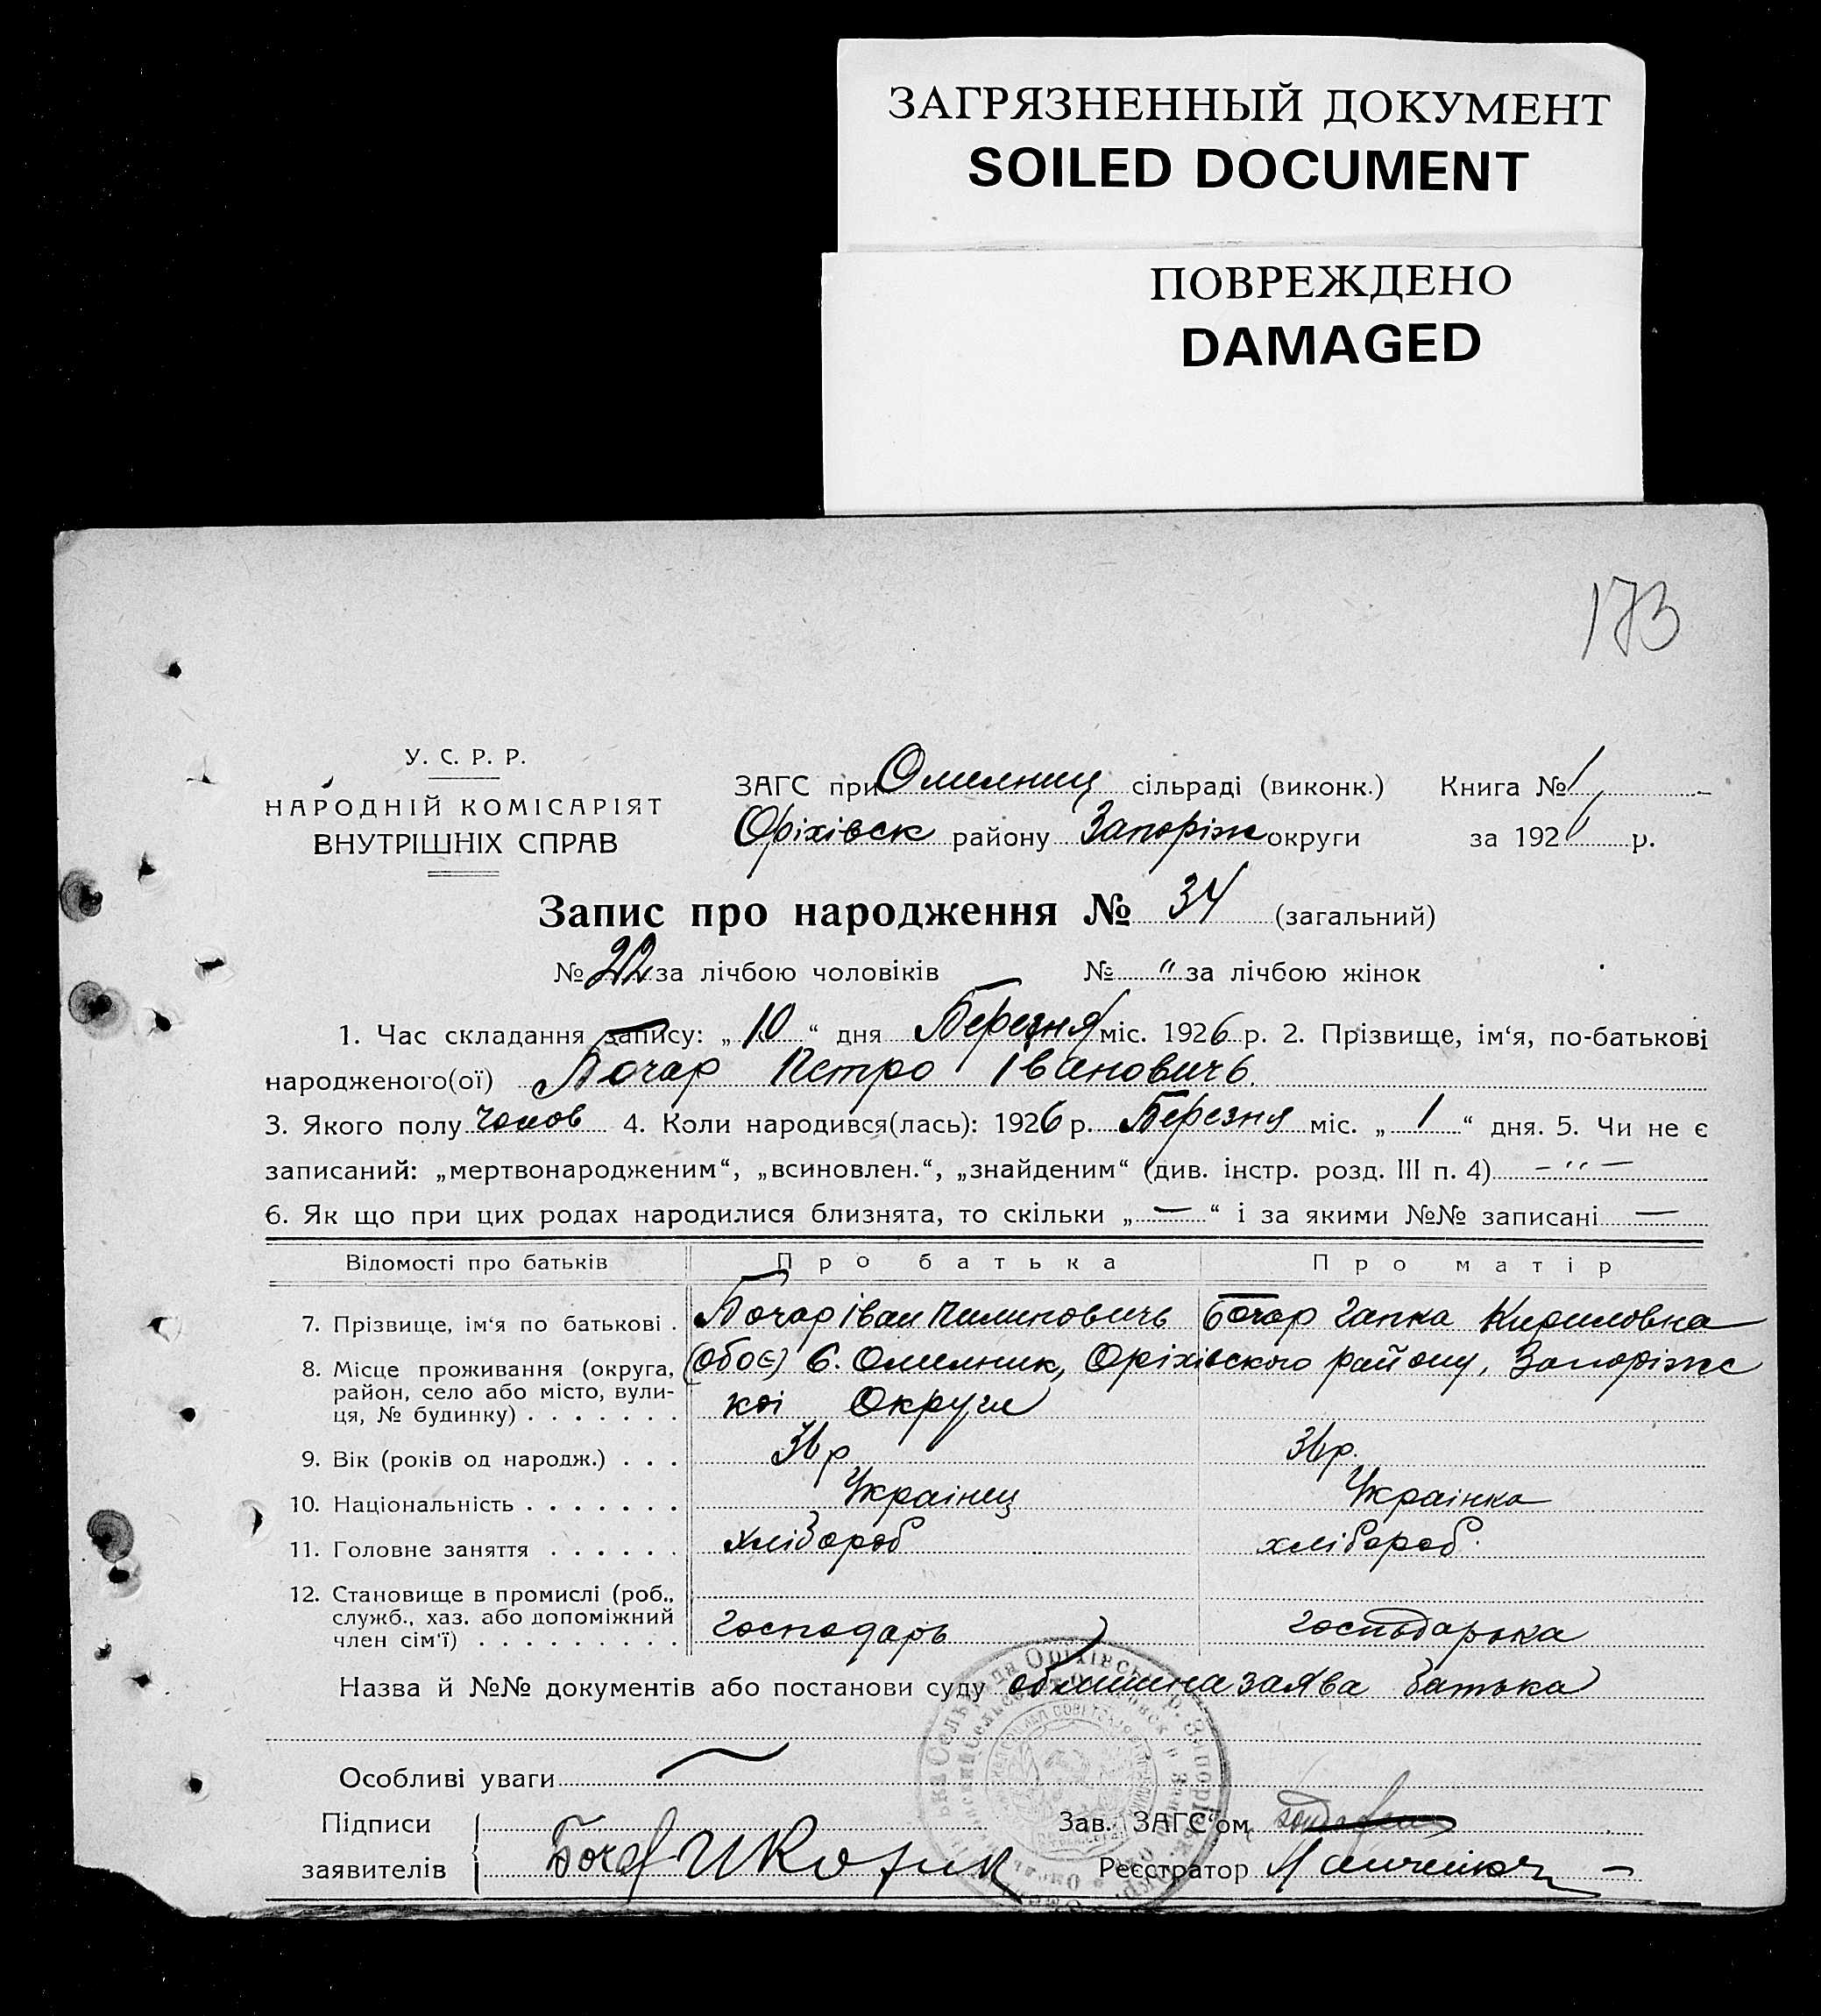 ЗАГРЯЗНЕННЫЙ ДОКУМЕНТ
SOILED DOCUMENT
ПОВРЕЖДЕНО
DAMAGED
173
У. С. Р. Р.
НАРОДНІЙ КОМІСАРІЯТ
ВНУТРІШНІХ СПРАВ
ЗАГС при Омелниц сільраді (виконк.) Книга № 1
Оріхівск району Запоріж округи за 1926 р.
Запис про народження № 34 (загальний)
№ 22 за лічбою чоловіків № " за лічбою жінок
1. Час складання запису: „10“ дня Березня міс. 1926 р. 2. Прізвище, ім‘я, по-батькові
народженого(ої) Бочар Петро Івановичь
3. Якого полу чолов 4. Коли народився(лась): 1926 р. Березня міс. „1“ дня. 5. Чи не є
записаний: „мертвонародженим“, „всиновлен.“, „знайденим“ (див. інстр. розд. III п. 4) — " —
6. Як що при цих родах народилися близнята, то скільки „—“ і за якими №№ записані —
Відомості про батьків Про батька Про матір
7. Прізвище, ім‘я по батькові . Бочар Іван Пилиповичь Бочар Гапка Кириловка
8. Місце проживання (округа, район, село або місто, вули- ця, № будинку) . . . . . . . (обоє) с. Омелник, Оріхівского району, Запоріжс
коі Округи
9. Вік (років од народж.) . . . 36 р. 36 р.
10. Національність . . . . . . . Украінец Украінка
11. Головне заняття . . . . . . хлібороб хлібороб
12. Становище в промислі (роб., служб., хаз. або допоміжний член сім‘ї) . . . . . . . . . господарь господарька
Назва й №№ документів або постанови суду обпишна заява батька
Особливі уваги
Підписи Зав. ЗАГС‘ом
заявителів Бочар Реєстратор